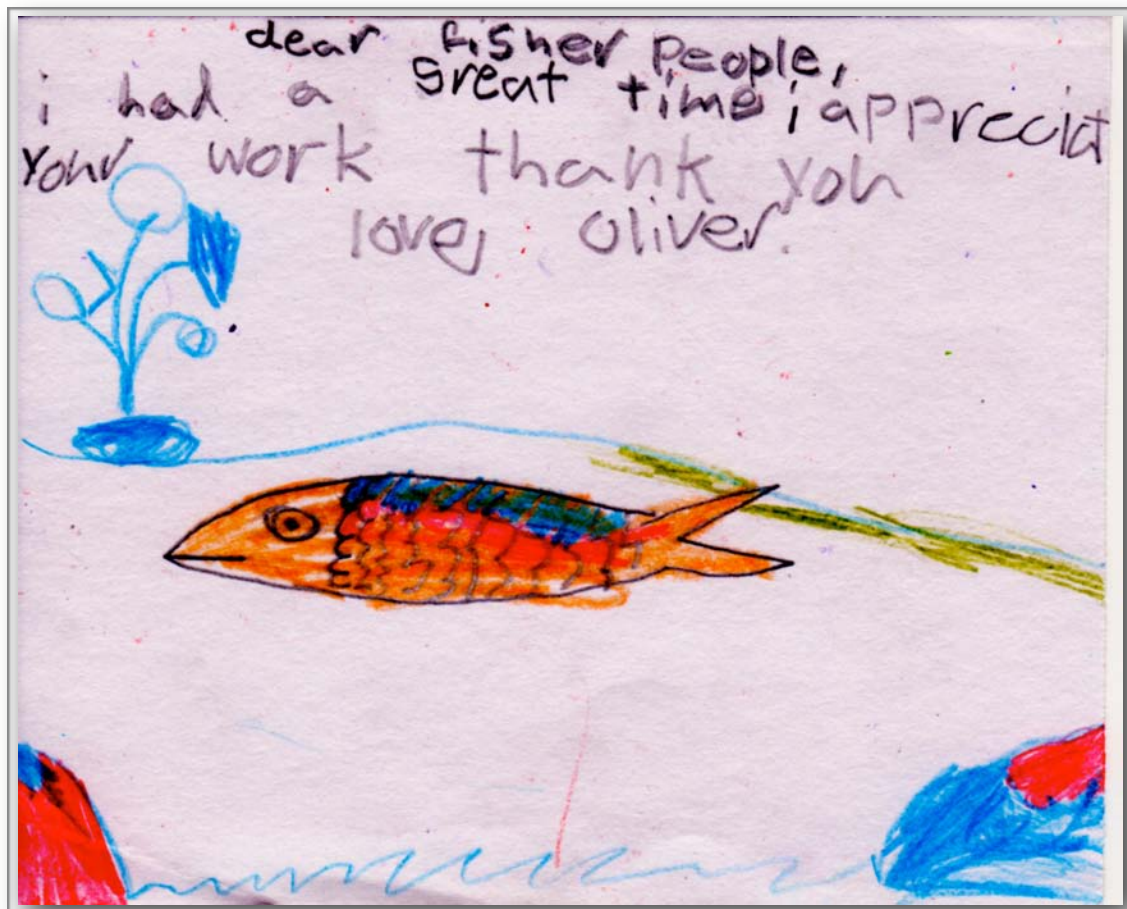 dear fisher people,
i had a great time i appreciat
your work thank you
love, oliver.